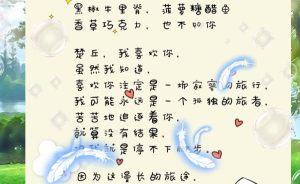 黑椒牛里脊，菠萝糖醋鱼
香草巧克力，也不如你
楚丘，我喜欢你，
虽然我知道，
喜欢你注定是一场寂寞的旅行，
我可能永远是一个孤独的旅者，
苦苦地追逐着你，
就算没有结果，
就是停不下脚步，
因为这漫长的旅途，